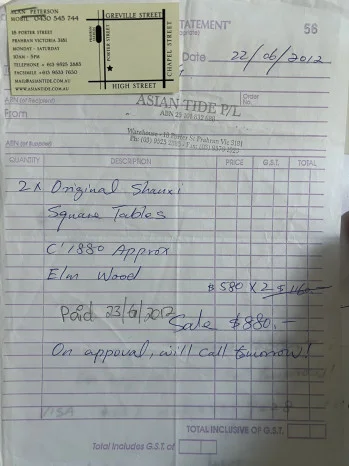 SEAN PETERSON
MOBIL 0430 545 744
18 PORTER STREET
PRAHRAN VICTORIA 3181
MONDAY - SATURDAY
10AM - 5PM
TELEPHONE
FACSIMILE
MAIL@ASIANTIDE.COM.AU
WWW.ASIANTIDE.COM.AU
GREVILLE STREET
PORTER STREET
CHAPEL STREET
HIGH STREET
STATEMENT*
56
Date 22/06/2012
Order No.
ABN (of Recipient)
From
ASIAN TIDE P/L
ABN
Warehouse - 18 Porter St Prahran Vic 3181
ABN (of Supplier)
QUANTITY DESCRIPTION PRICE G.S.T. TOTAL
2 x Original Shanxi
Square Tables
C' 1880 Approx
Elm Wood
$580 x 2
Paid 23/6/2012
Sale $880.-
On approval, will call tomorrow!
VISA
TOTAL INCLUSIVE OF G.S.T.
Total Includes G.S.T. of